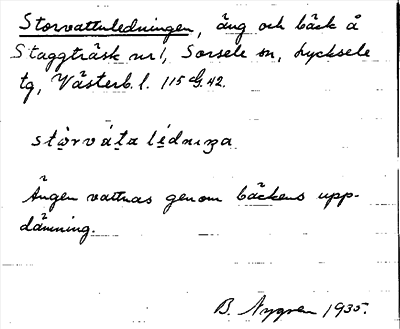 Storvattuledningen, äng och bäck å
Staggträsk nr 1, Sorsele sn, Lycksele
tg, Västerb. l. 115 G. 42.
stòrváta lédniŋa
Ängen vattnas genom bäckens upp-
dämning.
B. Nygren 1935.